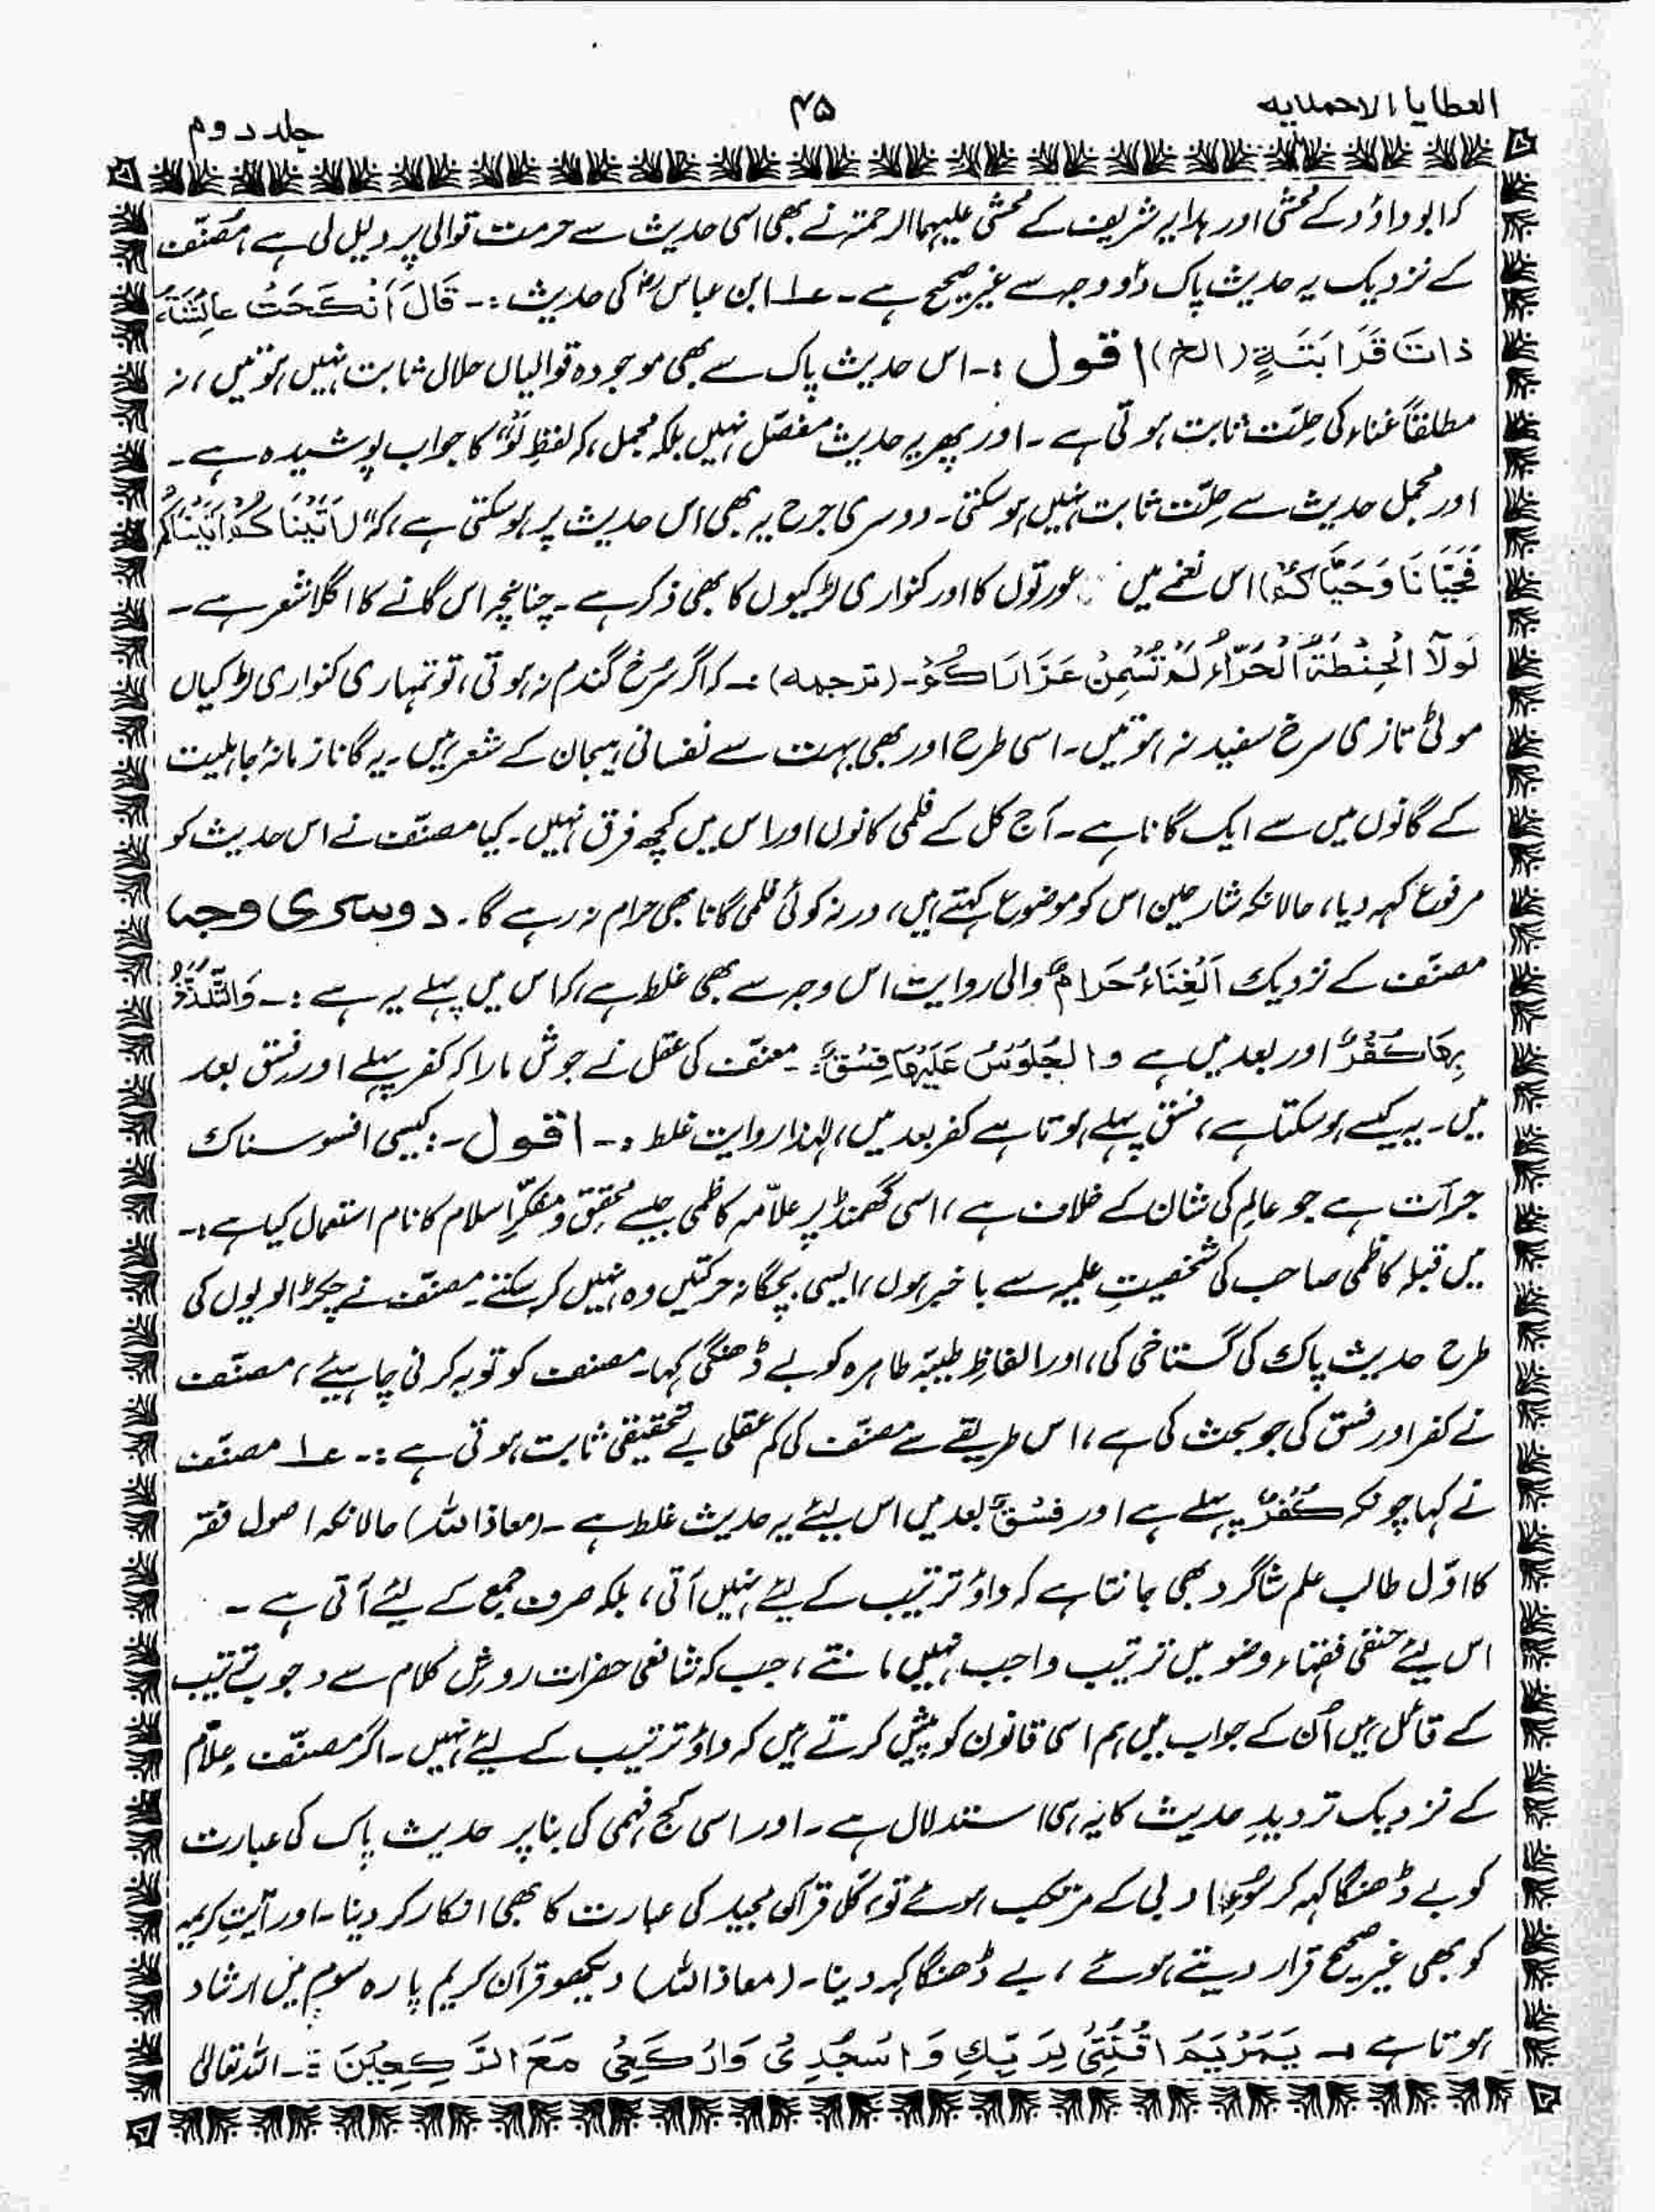 العطایا الاحمدیہ
۴۵
جلد دوم
کہ ابو داؤد کے محشی اور ہدایہ شریف کے محشی علیہما الرحمتہ نے بھی اسی حدیث سے حرمت قوالی پر دلیل لی ہے، مصنّف
کے نزدیک یہ حدیث پاک دو وجہ سے غیر صحیح ہے۔ ۱؎ ابن عباس رض کی حدیث :۔ قَالَ اَنْکَحَتْ عَائِشَۃُ
ذَاتَ قَرَابَتَہٍ (الخ) اقول :۔ اس حدیث پاک سے بھی موجودہ قوالیاں حلال ثابت نہیں ہوتیں، نہ
مطلقاً غناء کی حِلّت ثابت ہوتی ہے۔ اور پھر یہ حدیث مفصّل نہیں بلکہ مجمل، کہ لفظِ لَوْ، کا جواب پوشیدہ ہے۔
اور مجمل حدیث سے حِلّت ثابت نہیں ہو سکتی۔ دوسری جرح یہ بھی اس حدیث پر ہو سکتی ہے، کہ اَتَیْنَاکُمْ اَتَیْنَاکُمْ
فَحَیَّانَا وَحَیَّاکُمْ) اس نغمے میں عورتوں کا اور کنواری لڑکیوں کا بھی ذکر ہے۔ چنانچہ اس گانے کا اگلا شعر ہے۔
لَوْلَا الْحِنْطَۃُ الْحَمْرَاءُ لَمْ تُسْمِنْ عَذَارَاکُمْ۔ (ترجمہ) :۔ کہ اگر سُرخ گندم نہ ہوتی، تو تمہاری کنواری لڑکیاں
موٹی تازی سرخ سفید نہ ہوتیں۔ اسی طرح اور بھی بہت سے نفسانی ہیجان کے شعر ہیں۔ یہ گانا زمانۂ جاہلیت
کے گانوں میں سے ایک گانا ہے۔ آج کل کے فلمی گانوں اور اس میں کچھ فرق نہیں۔ کیا مصنّف نے اس حدیث کو
مرفوع کہہ دیا، حالانکہ شارحین اس کو موضوع کہتے ہیں، ورنہ کوئی فلمی گانا بھی حرام نہ رہے گا۔ دوسری وجہ
مصنّف کے نزدیک اَلْغِنَاءُ حَرَامٌ والی روایت اس وجہ سے بھی غلط ہے، کہ اس میں پہلے یہ ہے :۔ وَالتَّلَذُّذُ
بِھَا کُفْرٌ اور بعد میں ہے والْجُلُوْسُ عَلَیْھَا فِسْقٌ :۔ مصنّف کی عقل نے جوش مارا کہ کفر پہلے اور فسق بعد
میں۔ یہ کیسے ہو سکتا ہے، فسق پہلے ہوتا ہے کفر بعد میں، لہٰذا روایت غلط :۔ اقول :۔ کیسی افسوسناک
جرأت ہے جو عالِم کی شان کے خلاف ہے، اسی گھمنڈ پر علاّمہ کاظمی جیسے محقق و مفکّرِ اسلام کا نام استعمال کیا ہے :۔
میں قبلہ کاظمی صاحب کی شخصیتِ علمیہ سے باخبر ہوں، ایسی بچگانہ حرکتیں وہ نہیں کر سکتے۔ مصنّف نے چکڑالویوں کی
طرح حدیث پاک کی گستاخی کی، اور الفاظِ طیّبہ طاہرہ کو بے ڈھنگی کہا۔ مصنف کو توبہ کرنی چاہیئے، مصنّف
نے کفر اور فسق کی جو بحث کی ہے، اس طریقے سے مصنّف کی کم عقلی بے تحقیقی ثابت ہوتی ہے :۔ ۱؎ مصنّف
نے کہا چونکہ کُفْرٌ پہلے ہے اور فِسْقٌ بعد میں اس لیئے یہ حدیث غلط ہے۔ (معاذ اللہ) حالانکہ اصول فقہ
کا اوّل طالب علم شاگرد بھی جانتا ہے کہ واؤ ترتیب کے لیئے نہیں آتی، بلکہ صرف جمع کے لیئے آتی ہے۔
اس لیئے حنفی فقہاء وضو میں ترتیب واجب نہیں مانتے، جب کہ شافعی حضرات روشِ کلام سے وجوبِ ترتیب
کے قائل ہیں اُن کے جواب میں ہم اسی قانون کو پیش کرتے ہیں کہ واؤ ترتیب کے لیئے نہیں۔ اگر مصنّف علاّم
کے نزدیک تردیدِ حدیث کا یہ ہی استدلال ہے۔ اور اسی کج فہمی کی بنا پر حدیث پاک کی عبارت
کو بے ڈھنگا کہہ کر سُوءِ ادبی کے مرتکب ہوئے تو، کل قرآن مجید کی عبارت کا بھی انکار کر دینا۔ اور آیتِ کریمہ
کو بھی غیر صحیح قرار دیتے ہوئے، بے ڈھنگا کہہ دینا۔ (معاذ اللہ) دیکھو قرآن کریم پارہ سوم میں ارشاد
ہوتا ہے :۔ یٰمَرْیَمُ اقْنُتِیْ لِرَبِّکِ وَاسْجُدِیْ وَارْکَعِیْ مَعَ الرّٰکِعِیْنَ :۔ اللہ تعالیٰ